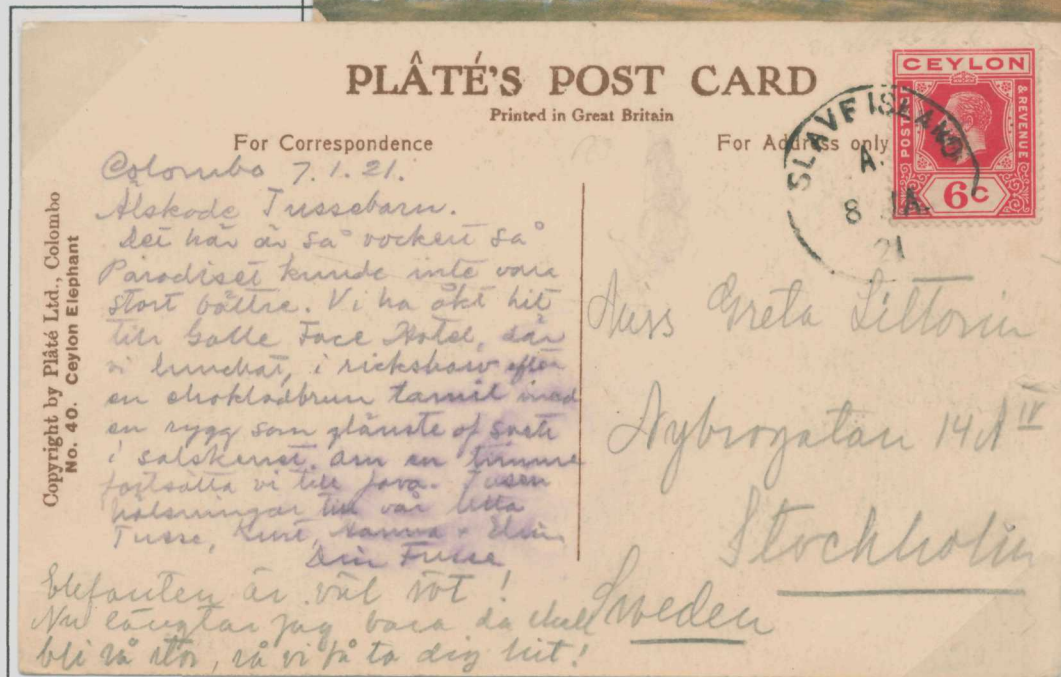 PLÂTÉ'S POST CARD
Printed in Great Britain
For Correspondence
For Address only
Copyright by Plâté Ltd., Colombo
No. 40. Ceylon Elephant
CEYLON
POSTAGE
& REVENUE
6c
SLAVE ISLAND
A.
8 JA.
21
Colombo 7.1.21.
Älskade Tussebarn.
Det här är så vackert så
Paradiset kunde inte vara
stort bättre. Vi ha åkt hit
till Galle Face Hotel, där
vi lunchat, i rickshaw efter
en chokladbrun tamil med
en rygg som glänste af svett
i solskenet. Om en timme
fortsätta vi till Java. Tusen
hälsningar till vår lilla
Tusse, Kurt, Hanna + Elin
Din Fusse
Elefanten är väl söt!
Nu längtar jag bara du skall
bli så stor, så vi få ta dig hit!
Miss Greta Littorin
Nybrogatan 14A IV
Stockholm
Sweden